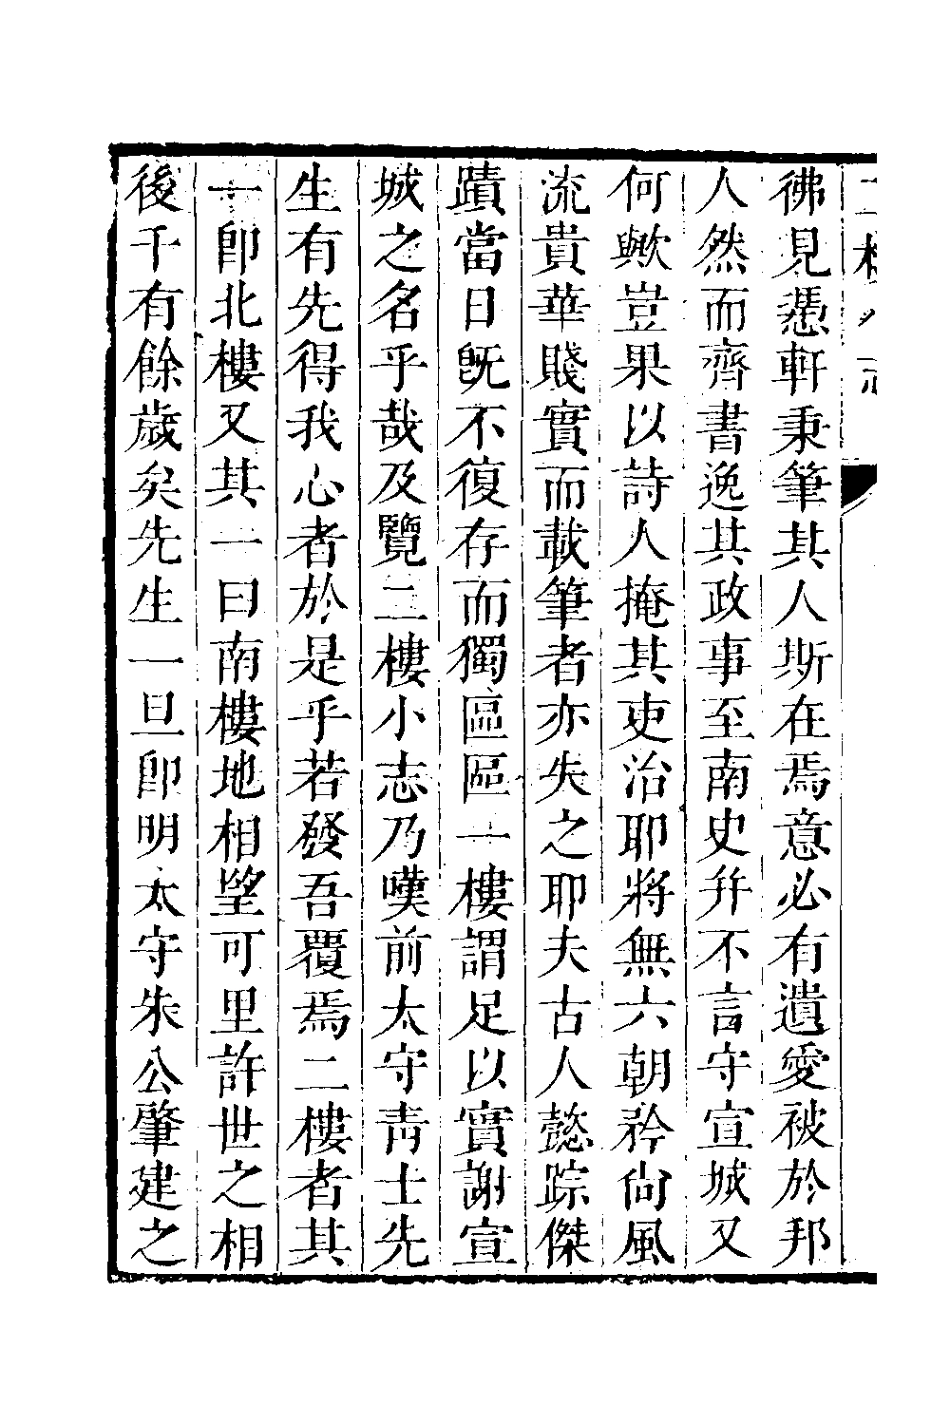 彿見憑軒秉筆其人斯在焉意必有遺愛被於邦
人然而齊書逸其政事至南史并不言守宣城又
何歟豈果以詩人掩其吏治耶將無六朝矜尙風
流貴華賤實而載筆者亦失之耶夫古人懿踪傑
蹟當日旣不復存而獨區區一樓謂足以實謝宣
城之名乎哉及覽二樓小志乃嘆前太守靑士先
生有先得我心者於是乎若發吾覆焉二樓者其
一卽北樓又其一曰南樓地相望可里許世之相
後千有餘歲矣先生一旦卽明太守朱公肇建之